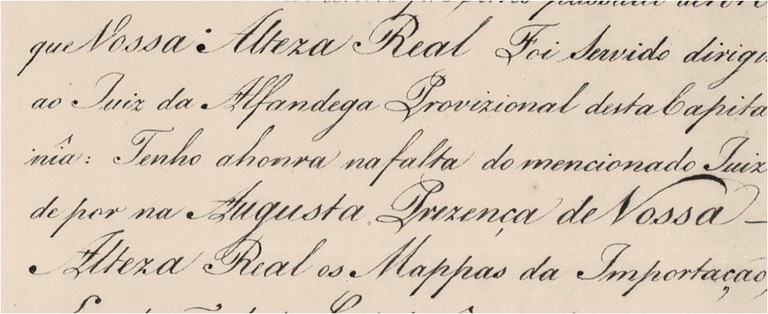 que Vossa Alteza Real Foi Servido dirigi
ao Juiz da Alfandega Provizional desta Capita
nîa: Tenho ahonra nafalta do mencionado Juiz
de por na Augusta Prezença de Vossa
Alteza Real os Mappas da Importação,